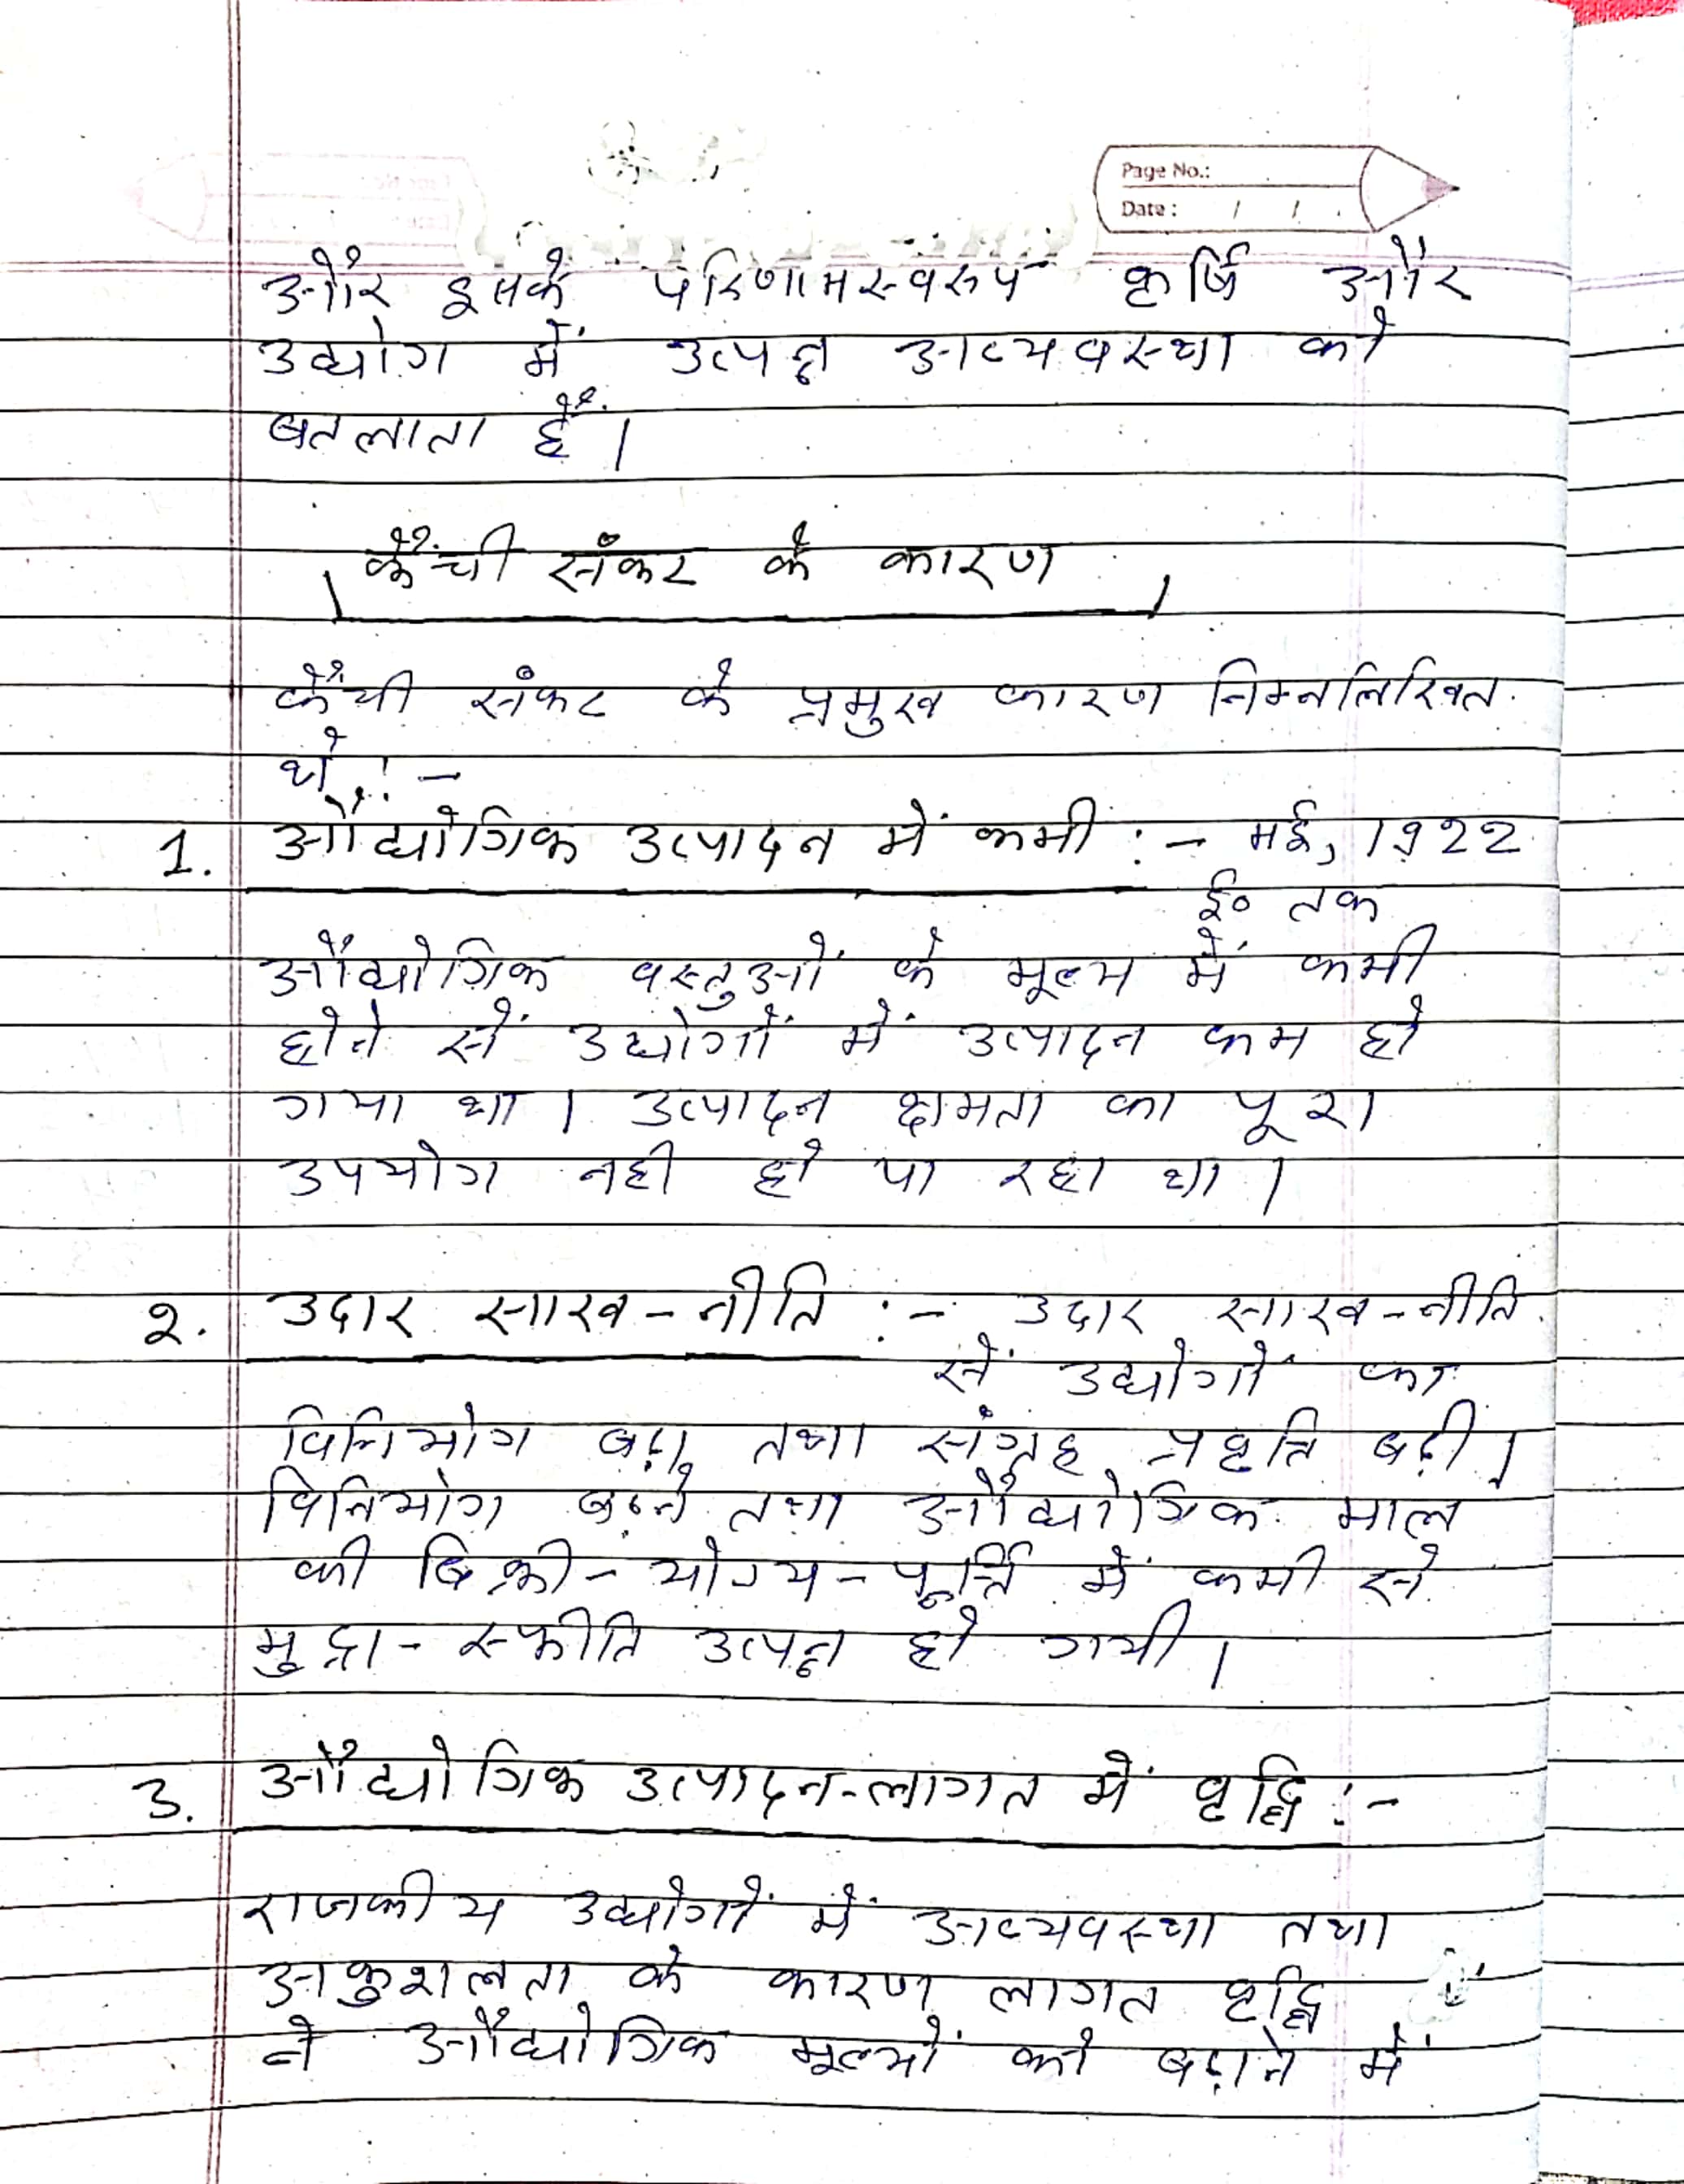 Page No.:
Date: / /
और इसके परिणामस्वरुप कृर्षि और
उद्योग में उत्पन्न अव्यवस्था को
बतलाता हैं।
कैंची संकट के कारण
कैंची संकट के प्रमुख कारण निम्नलिखित
थे :-
1. औद्योगिक उत्पादन में कमी :- मई, 1922
ई० तक
औद्योगिक वस्तुओं के मूल्य में कमी
होने सें उद्योगों में उत्पादन कम हो
गया था। उत्पादन क्षमता का पूरा
उपयोग नही हो पा रहा था।
2. उदार साख-नीति :- उदार साख-नीति
सें उद्योगों का
विनियोग बढ़ा तथा संग्रह प्रवृत्ति बढ़ी।
विनियोग बढ़ने तथा औद्योगिक माल
की बिक्री-योग्य-पूर्त्ति में कमी से
मुद्रा-स्फीति उत्पन्न हो गयी।
3. औद्योगिक उत्पादन-लागत में वृद्धि :-
राजकीय उद्योगों में अव्यवस्था तथा
अकुशलता के कारण लागत वृद्धि
ने औद्योगिक मूल्यों को बढ़ाने में